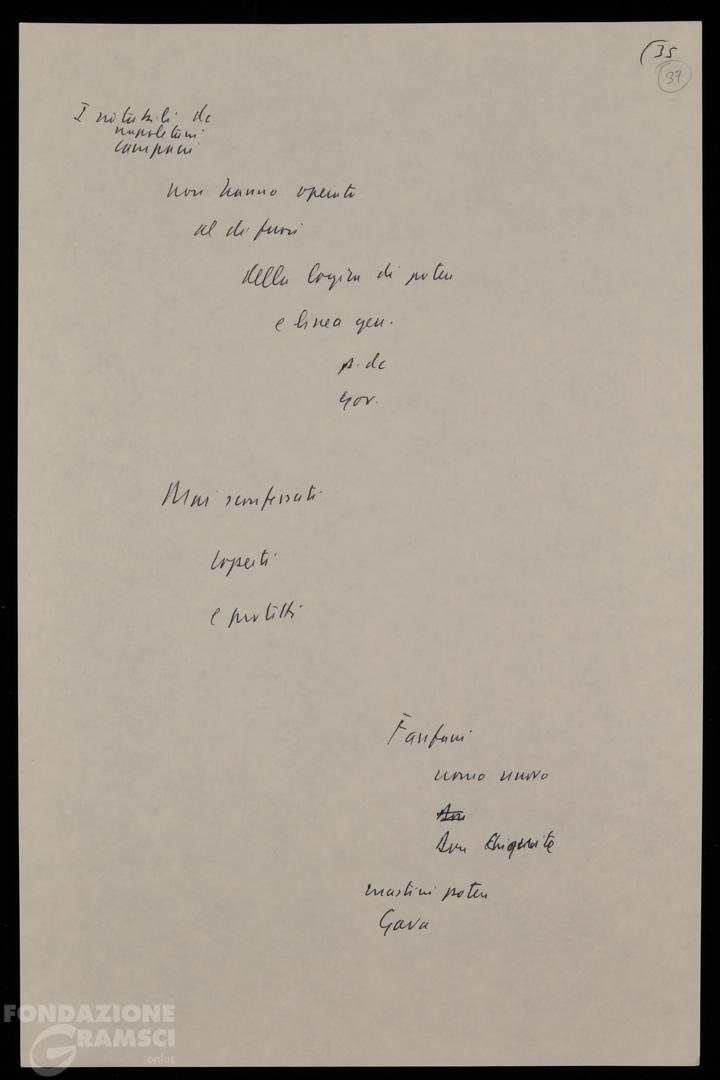 (35
37
I notabili dc
napoletani
campani
non hanno operato
al di fuori
della logica di poten
e linea gen.
p. dc
gov.
Mai sconfessati
coperti
e protetti
Fanfani
uomo nuovo
poten
Gava
FONDAZIONE
GRAMSCI
onlus